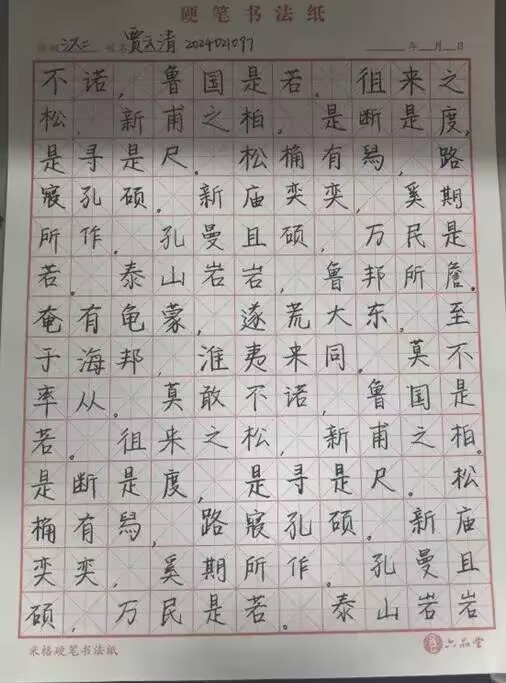 硬笔书法纸
班级 汉二 姓名 贾云清 2024021097 年 月 日
不诺，鲁国是若。徂来之
松，新甫之柏。是断是度，
是寻是尺。松桷有舄，路
寝孔硕。新庙奕奕，奚期
所作。孔曼且硕，万民是
若。泰山岩岩，鲁邦所詹。
奄有龟蒙，遂荒大东。至
于海邦，淮夷来同。莫不
率从。莫敢不诺，鲁国是
若。徂来之松，新甫之柏。
是断是度，是寻是尺。松
桷有舄，路寝孔硕。新庙
奕奕，奚期所作。孔曼且
硕，万民是若。泰山岩岩
米格硬笔书法纸 六品堂